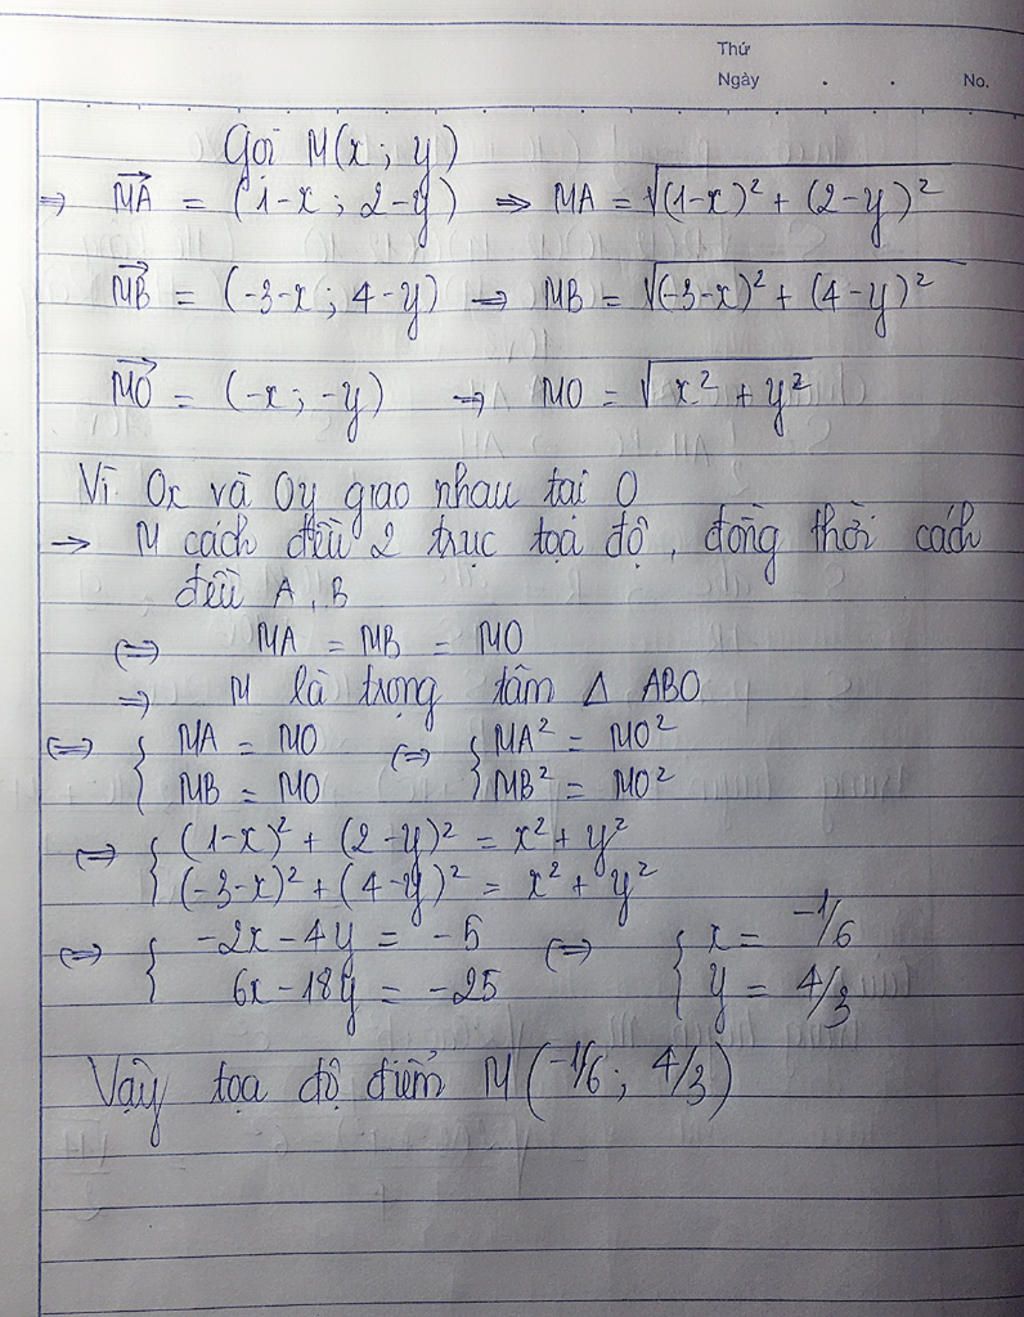 Thứ
Ngày . . No.
Gọi M(x; y)
⇒ MA = (1-x; 2-y) ⇒ MA = √(1-x)² + (2-y)²
MB = (-3-x; 4-y) ⇒ MB = √(-3-x)² + (4-y)²
MO = (-x; -y) ⇒ MO = √x² + y²
Vì Ox và Oy giao nhau tại O
→ M cách đều 2 trục toạ độ, đồng thời cách
đều A, B
⇔ MA = MB = MO
⇒ M là trọng tâm Δ ABO
⇔ { MA = MO ⇔ { MA² = MO²
MB = MO MB² = MO²
⇔ { (1-x)² + (2-y)² = x² + y²
(-3-x)² + (4-y)² = x² + y²
⇔ { -2x - 4y = -5 ⇔ { x = -1/6
6x - 18y = -25 y = 4/3
Vậy tọa độ điểm M(-1/6; 4/3)